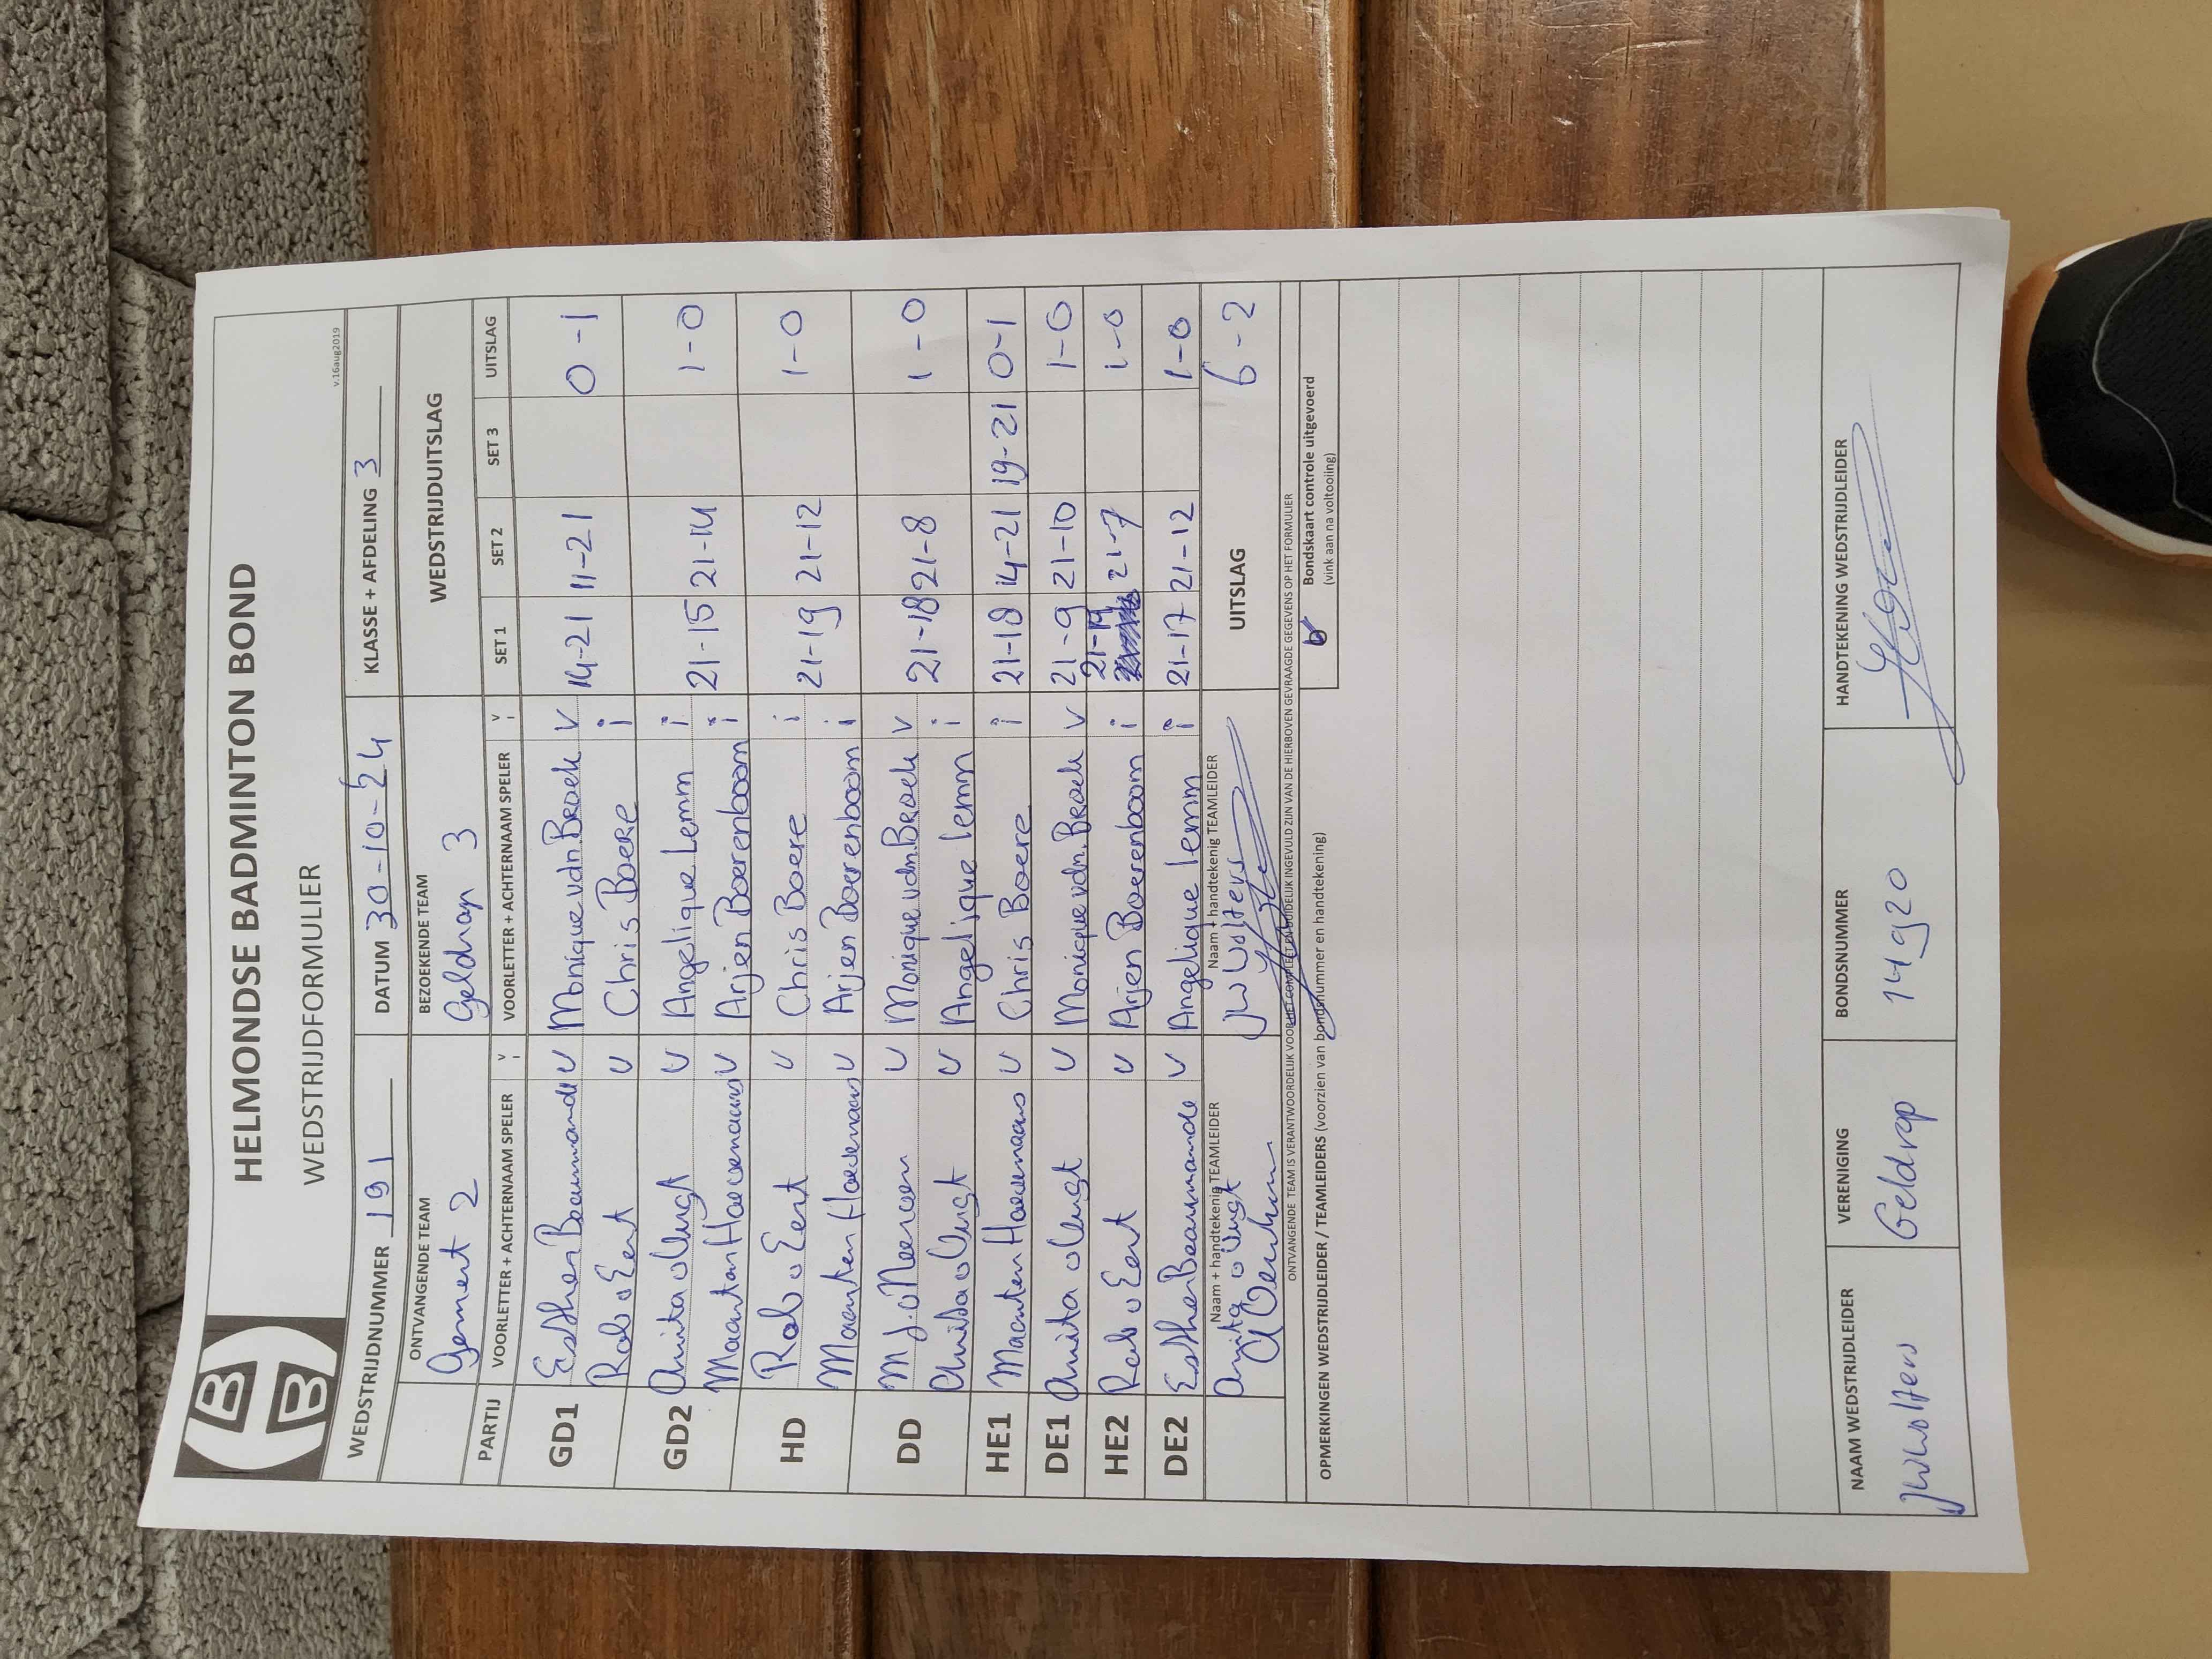 HELMONDSE BADMINTON BOND
WEDSTRIJDFORMULIER
v.16aug2019
WEDSTRIJDNUMMER 191 DATUM 30-10-24 KLASSE + AFDELING 3
ONTVANGENDE TEAM BEZOEKENDE TEAM WEDSTRIJDUITSLAG
Gemert 2 Geldrop 3
PARTIJ VOORLETTER + ACHTERNAAM SPELER v i VOORLETTER + ACHTERNAAM SPELER v i SET 1 SET 2 SET 3 UITSLAG
GD1 Esther v Monique vdn. Broek v 14-21 11-21 0-1
Rob v Eert v Chris Boere i
GD2 Anita v v Angelique Lemm i 21-15 21-14 1-0
Maarten Hoevenaars v Arjen Boerenboom i
HD Rob v Eert v Chris Boere i 21-19 21-12 1-0
Maarten Hoevenaars v Arjen Boerenboom i
DD M J. v v Monique vdn. Broek v 21-18 21-8 1-0
Anita v v Angelique Lemm i
HE1 Maarten Hoevenaars v Chris Boere i 21-18 14-21 19-21 0-1
DE1 Anita v v Monique vdn. Broek v 21-9 21-10 1-0
HE2 Rob v Eert v Arjen Boerenboom i 21-19 21-7 1-0
DE2 Esther v Angelique Lemm i 21-17 21-12 1-0
Naam + handtekenig TEAMLEIDER Naam + handtekenig TEAMLEIDER UITSLAG 6-2
Anita v
JW Wolters
ONTVANGENDE TEAM IS VERANTWOORDELIJK VOOR HET COMPLEET EN DUIDELIJK INGEVULD ZIJN VAN DE HIERBOVEN GEVRAAGDE GEGEVENS OP HET FORMULIER
OPMERKINGEN WEDSTRIJDLEIDER / TEAMLEIDERS (voorzien van bondsnummer en handtekening)
Bondskaart controle uitgevoerd
(vink aan na voltooiing)
NAAM WEDSTRIJDLEIDER VERENIGING BONDSNUMMER HANDTEKENING WEDSTRIJDLEIDER
JW Wolters Geldrop 14920